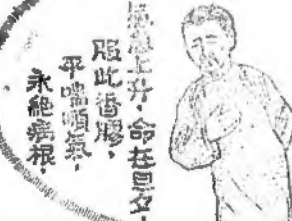 上升，命在旦夕，
服此香膠，
平喘順氣，
永絕病根，